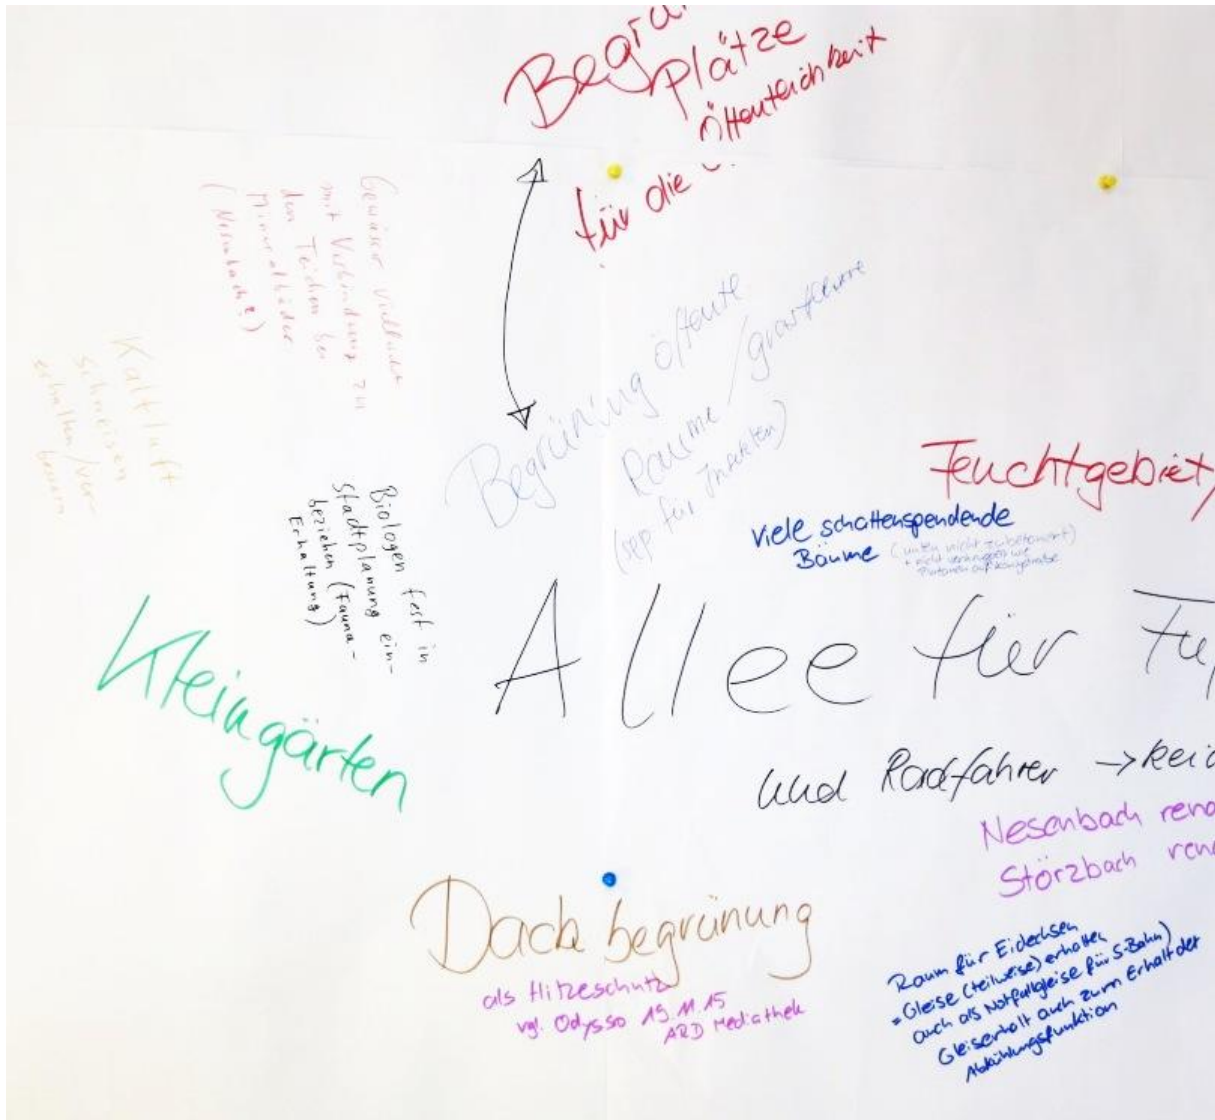 Begrü
plätze
für die Öffentlichkeit
Gewässer vielleicht
mit Verbindung zu
den Teichen bei
Mineralbäder
(Nesenbach?)
Kaltluft
schneisen
erhalten/ver-
bessern
Begrünung öffentl.
Räume /
(sep für Insekten)
Biologen fest in
Stadtplanung ein-
beziehen (Fauna-
Erhaltung)
Feuchtgebiet
viele schattenspendende
Bäume (unten nicht zubetoniert)
Allee für Fu
und Radfahrer → kei
Kleingärten
Nesenbach rena
Störzbach rena
Dachbegrünung
als Hitzeschutz
vgl. Odysso 19.11.15
ARD Mediathek
Raum für Eidechsen
= Gleise (teilweise) erhalten
auch als Notfallgleise für S-Bahn)
Gleiserhalt auch zum Erhalt der
Abkühlungsfunktion